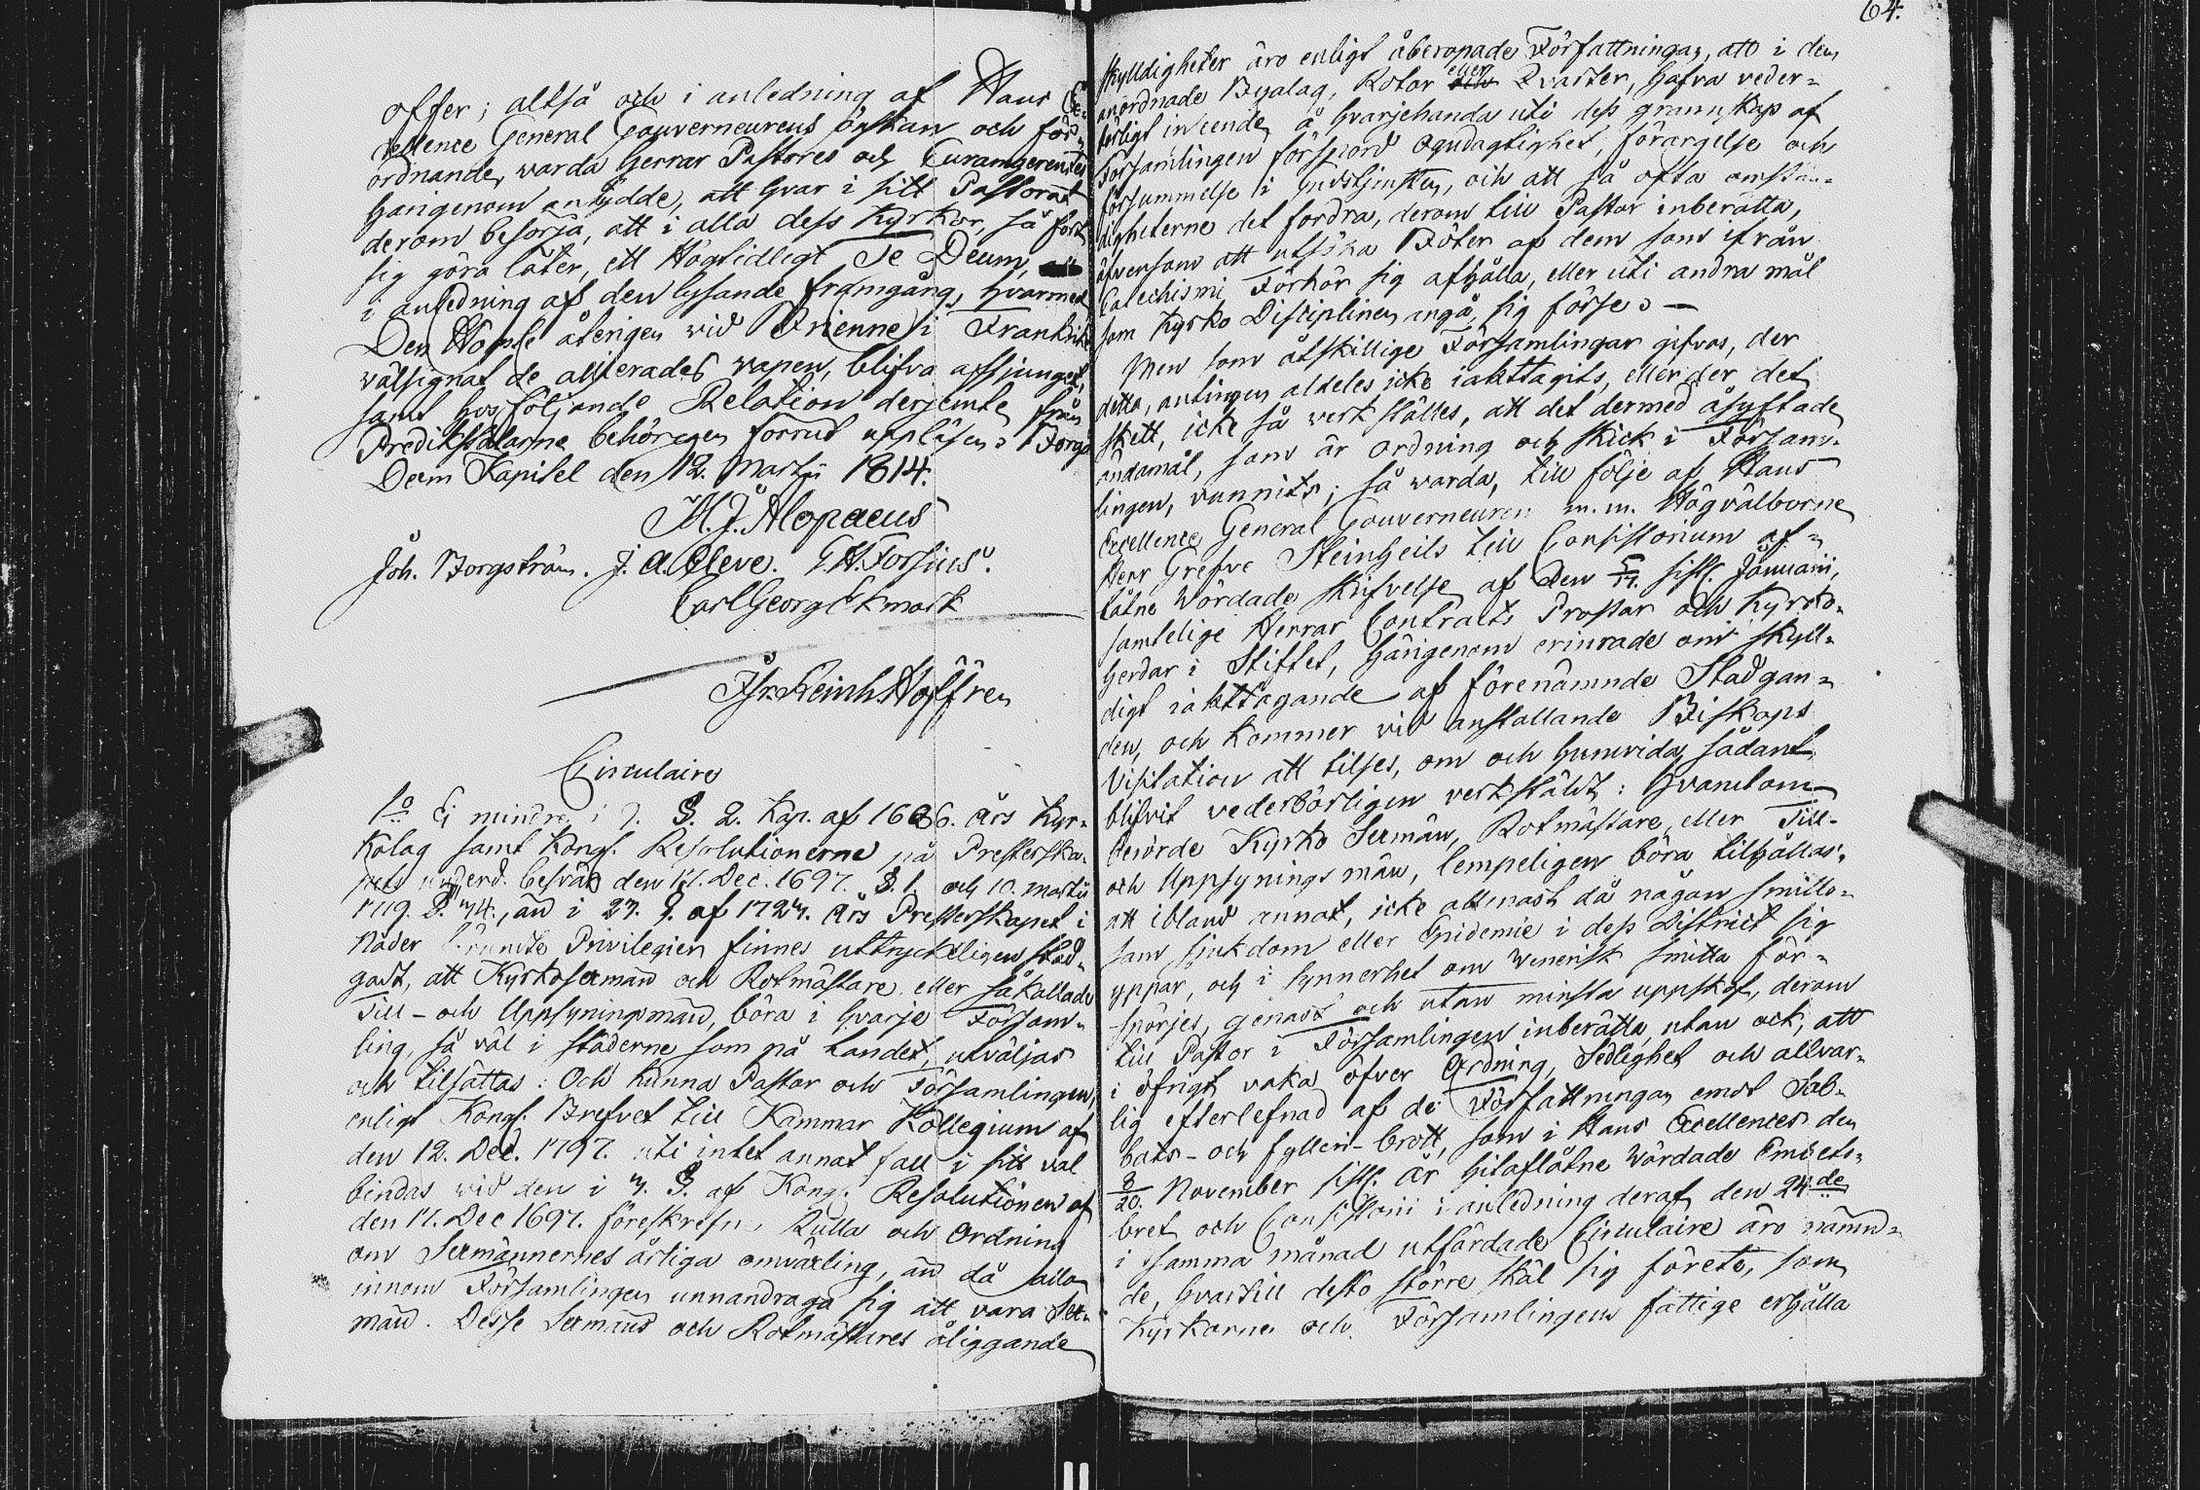 offer; altså och i anledning af Hans Ex-
cellence General Gouverneurens önskan och för-
ordnande, warda Herrar Pastores och Curamgerentes
härigenom antydde, att hvar i sitt Pastorat
derom besörja, att i alla dess Kyrkor, så fort
sig göra låter, ett Högtidligt Te Deum,
i anledning af den lysande framgång, hvarmed
Den Högste återigen wid Brienne i Frankrike
wälsignat de allierades wapen, blifva afsjunget,
samt hos följande Relation derjemte från
Predikstolarne behörigen förrut uppläsen. Borgå
Dom Kapitel den 12. Martii 1814.
M. J. Alopaeus
Joh. Borgström. J. A. Cleve. G. H. Forsius.
Carl Georg Ekmark
Fr. Reinh. Hoffren
Circulaire
1o Ej mindre i 7. §. 2. Kap. af 1686. års Kyr-
kolag samt Kongl. Resolutionerne på Presterska-
pets underd. besvär den 17. Dec. 1697. §. 1. och 10. Martii
1719. §. 74., än i 27. §. af 1723. års Presterskapet i
Nåder förunnte Privilegier finnes uttryckeligen stad-
gadt, att Kyrkosexmän och Rotmästare eller så kallade
Till- och Uppsyningsmän, böra i hvarje Försam-
ling, så väl i städerne som på Landet, utväljas
och tilsättas: Och kunna Pastor och Församlingen,
enligt Kongl. Brefvet till Kammar Kollegium af
den 12. Dec. 1797. uti intet annat fall i sitt val
bindas wid den i 7. §. af Kongl. Resolutionen af
den 17. Dec 1697. föreskrefne Rulla och Ordning
om Sexmännernes årliga omväxling, än då alla
innom Församlingen unnandraga sig att vara Sex-
män. Desse Sexmäns och Rotmästares åliggande
64.
skylldigheter äro enligt åberopade Författningar, att i den
anordnade Byalag, Rotor eller Qvarter, hafva veder-
börligt inseende å hvarjehanda uti dess grannskap af
Församlingen förspord ogudagtighet, förargelse och
försummelse i Gudstjensten, och att så ofta omstän-
digheterne det fordra, derom till Pastor inberätta,
äfvensom att utsöka Böter af dem som ifrån
Catechismi Förhör sig afhålla, eller uti andra mål
som Kyrko Disciplinen angå, sig förse. —
Men som åtskillige Församlingar gifvas, der
detta, antingen aldeles icke iakttagits, eller der det
skett, icke så verkställts, att det dermed åsyftade
ändamål, som är ordning och skick i Försam-
lingen, vunnits; så warda, till följe af Hans
Excellence General Gouverneuren m. m. Högvälborne
Herr Grefve Steinheils till Consistorium af-
låtne Wördade skrifvelse af den 5/17. sistl. Januarii,
samtelige Herrar Contracts Prostar och Kyrko-
herdar i Stiftet, härigenom erinrade om skyll-
digt iakttagande af förenämnde Stadgan-
den, och kommer vid anstallande Biskops
Visitation att tilses, om och huruvida sådant
blifvit vederbörligen verkställdt: Hvarutom
berörde Kyrko Sexmän, Rotmästare, eller Till-
och Uppsyningsmän, lempeligen böra tilhållas,
att ibland annat, icke allenast då någon smitto-
sam sjukdom eller Epidemie i dess District sig
yppar, och i synnerhet om Wenerisk smitta för-
spörjes, genast och utan minsta uppskof, derom
till Pastor i Församlingen inberätta, utan ock, att
i öfrigt vaka öfver Ordning, Sedlighet och allvar-
lig efterlefnad af de Författningar emot Sab-
bats- och fylleri-brott, som i Hans Excellences den
8/20. November sistl. År hitaflåtne Wördade Embets-
bref och Consistorii i anledning deraf den 24de
i samma månad utfärdade Circulaire äro nämn-
de, hvartill desto större skäl sig förete, som
Kyrkorne och Församlingens fattige erhålla